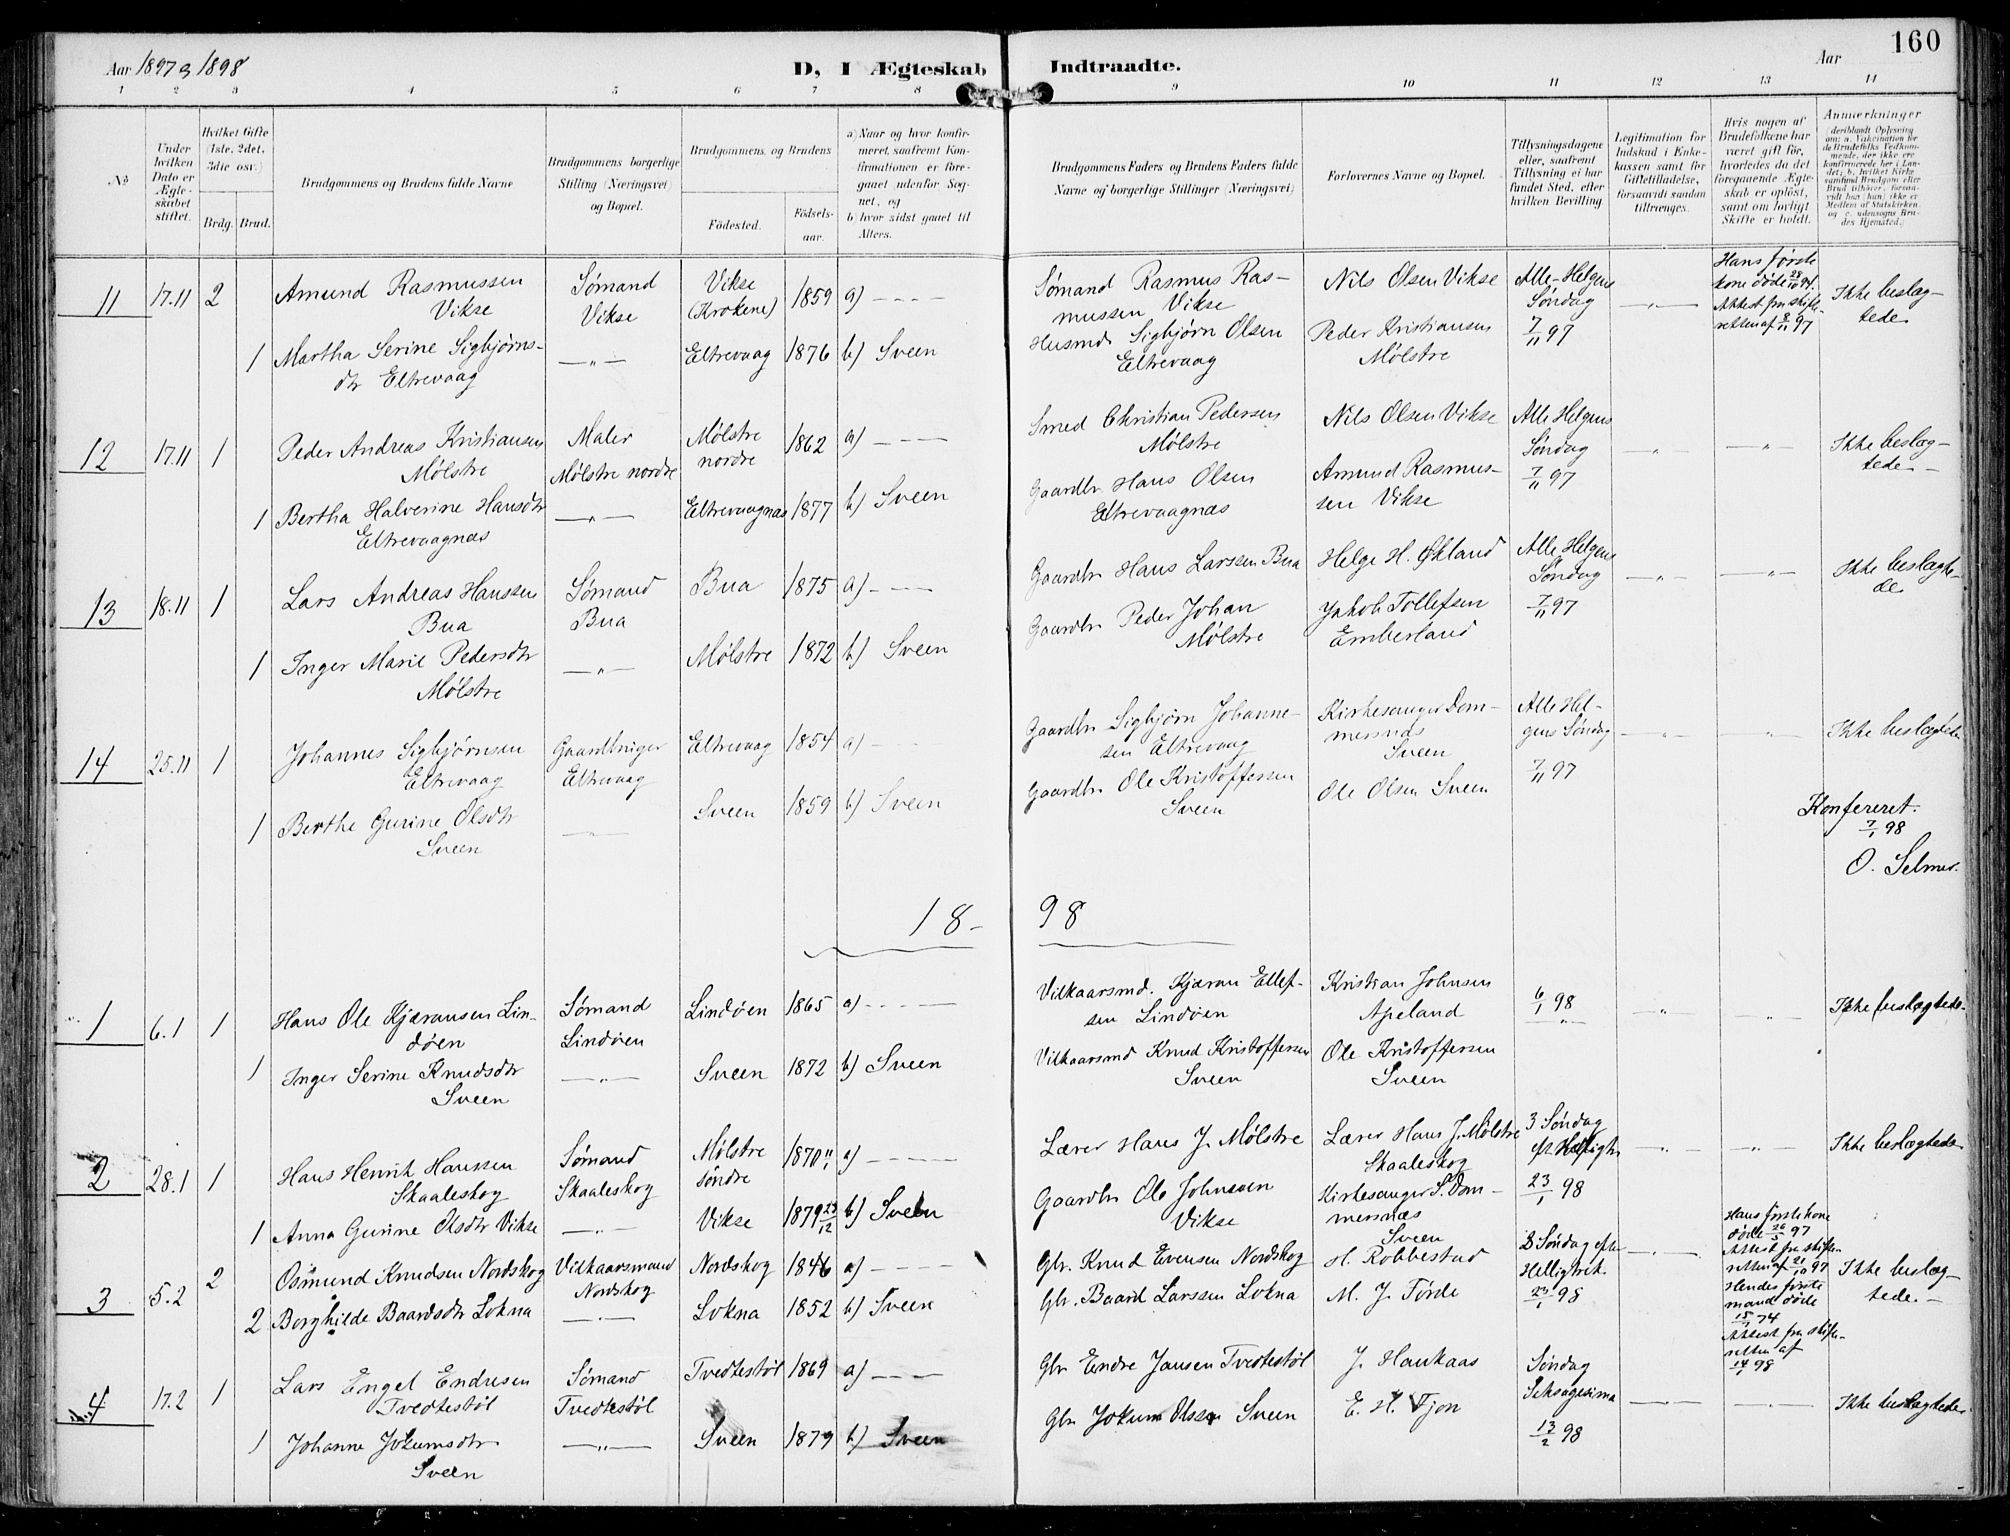 Aar 1897 og 1898
D, I Ægteskab Indtraadte.
Aar
160
1 2 3 4 5 6 7 8 9 10 11 12 13 14
No
Under hvilken Dato er Ægteskabet stiftet.
Hvilket Gifte (1ste, 2det, 3die osv.)
Brdg. Brud.
Brudgommens og Brudens fulde Navne
Brudgommens borgerlige Stilling (Næringsvei) og Bopæl.
Brudgommens og Brudens
Fødested.
Fødselsaar.
a) Naar og hvor konfirmeret, saafremt Konfirmationen er foregaaet udenfor Sognet, og
b) hvor sidst gaaet til Alters.
Brudgommens Faders og Brudens Faders fulde Navne og borgerlige Stillinger (Næringsvei)
Forlovernes Navne og Bopæl.
Tillysningsdagene eller, saafremt Tillysning ei har fundet Sted, efter hvilken Bevilling.
Legitimation for Indskud i Enkekassen samt for Giftetilladelse, forsaavidt saadan tiltrænges.
Hvis nogen af Brudefolkene har været gift før, hvorledes da det foregaaende Ægteskab er opløst, samt om lovligt Skifte er holdt.
Anmærkninger
(deriblandt Oplysning om: a. Vakcination for de Brudefolks Vedkommende, der ikke ere konfirmerede her i Landet; b. hvilket Kirkesamfund Brudgom eller Brud tilhører, forsaavidt han (hun) ikke er Medlem af Statskirken, og c. udensogns Brudes Hjemsted.)
11 17.11 2 Amund Rasmussen Vikse
Sømand Vikse
Vikse (Krokene) 1859 a) – – – –
Sømand Rasmus Rasmussen Vikse
Nils Olsen Vikse
Alle-Helgens Søndag 7/11 97
– " –
Hans første kone døde 28/10 94. Attest fra skifteretten af 8/11 97
Ikke beslægtede
1 Martha Serine Sigbjørnsdtr Eltrevaag
– " –
Eltrevaag 1876 b) Sveen
Husmd Sigbjørn Olsen Eltrevaag
Peder Kristiansen Mølstre
12 17.11 1 Peder Andreas Kristiansen Mølstre
Maler Mølstre nordre
Mølstre nordre 1862 a) – – –
Smed Christian Pedersen Mølstre
Nils Olsen Vikse
Alle Helgens Søndag 7/11 97
– " – – " –
Ikke beslægtede –
1 Bertha Halverine Hansdtr Eltrevaagnæs
– " –
Eltrevaagnæs 1877 b) Sveen
Gaardbr Hans Olsen Eltrevaagnæs
Amund Rasmussen Vikse
13 18.11 1 Lars Andreas Hanssen Bua
Sømand Bua
Bua 1875 a) – – –
Gaardbr Hans Larssen Bua
Helge H. Økland
Alle Helgens Søndag 7/11 97
– " – – " –
Ikke beslægtede
1 Inger Marie Pedersdtr Mølstre
– " –
Mølstre 1872 b) Sveen
Gaardbr Peder Johan Mølstre
Jakob Tollefsen Emberland
14 25.11 1 Johannes Sigbjørnsen Eltrevaag
Gaardbruger Eltrevaag
Eltrevaag 1854 a) – – –
Gaardbr Sigbjørn Johannesen Eltrevaag
Kirkesanger Dommersnæs Sveen
Alle Helgens Søndag 7/11 97
– " – – " –
Ikke beslægtede
1 Berthe Gurine Olsdtr Sveen
– " –
Sveen 1859 b) Sveen
Gaardbr Ole Kristoffersen Sveen
Ole Olsen Sveen
Konfereret. 7/1 98
O. Selmer.
18–98
1 6.1 1 Hans Ole Kjæransen Lindøen
Sømand Lindøen
Lindøen 1865 a) – – – –
Vilkaarsmd. Kjæran Ellefsen Lindøen
Kristian Johnsen Apeland
6/1 98
– " – – " –
Ikke beslægtede.
1 Inger Serine Knudsdtr Sveen
– " –
Sveen 1872 b) Sveen
Vilkaarsmd Knud Kristoffersen Sveen
Ole Kristoffersen Sveen
2 28.1 1 Hans Henrik Hanssen Skaaleskog
Sømand Skaaleskog
Mølstre søndre 1870 11/1 a) – – – –
Lærer Hans J. Mølstre
Lærer Hans J. Mølstre Skaaleskog
3 Søndag eft. Helligtr. 23/1 98
– " – – " –
Ikke beslægtede
1 Anna Gurine Olsdtr Vikse
– " –
Vikse 1879 23/12 b) Sveen
Gaardbr Ole Johnsen Vikse
Kirkesanger S. Dommersnæs Sveen
3 5.2 2 Osmund Knudsen Nordskog
Vilkaarsmand Nordskog
Nordskog 1846 a) – – – –
Gbr. Knud Evensen Nordskog
H. Robbestad
3 Søndag efter Helligtrek. 23/1 98
– " –
Hans første kone døde 26/5 97 Attest fra skifteretten af 21/10 97 Hendes første mand døde 15/1 74 Attest fra skifteretten af 14/1 98
Ikke beslægtede. –
2 Borghilde Baardsdtr Lokna
– " –
Lokna 1852 b) Sveen
Gbr. Baard Larssen Lokna
M. J. Førde
4 17.2 1 Lars Engel Endresen Tvedtestøl
Sømand Tvedtestøl
Tvedtestøl 1869 a) – – –
Gbr Endre Jansen Tvedtestøl
J. Haukaas
Søndag Seksagesima 13/2 98
– " – – " –
Ikke beslægtede.
1 Johanne Jokumsdtr Sveen
– " –
Sveen 1879 b) Sveen
Gbr Jokum Olssen Sveen
E. H. Tjon